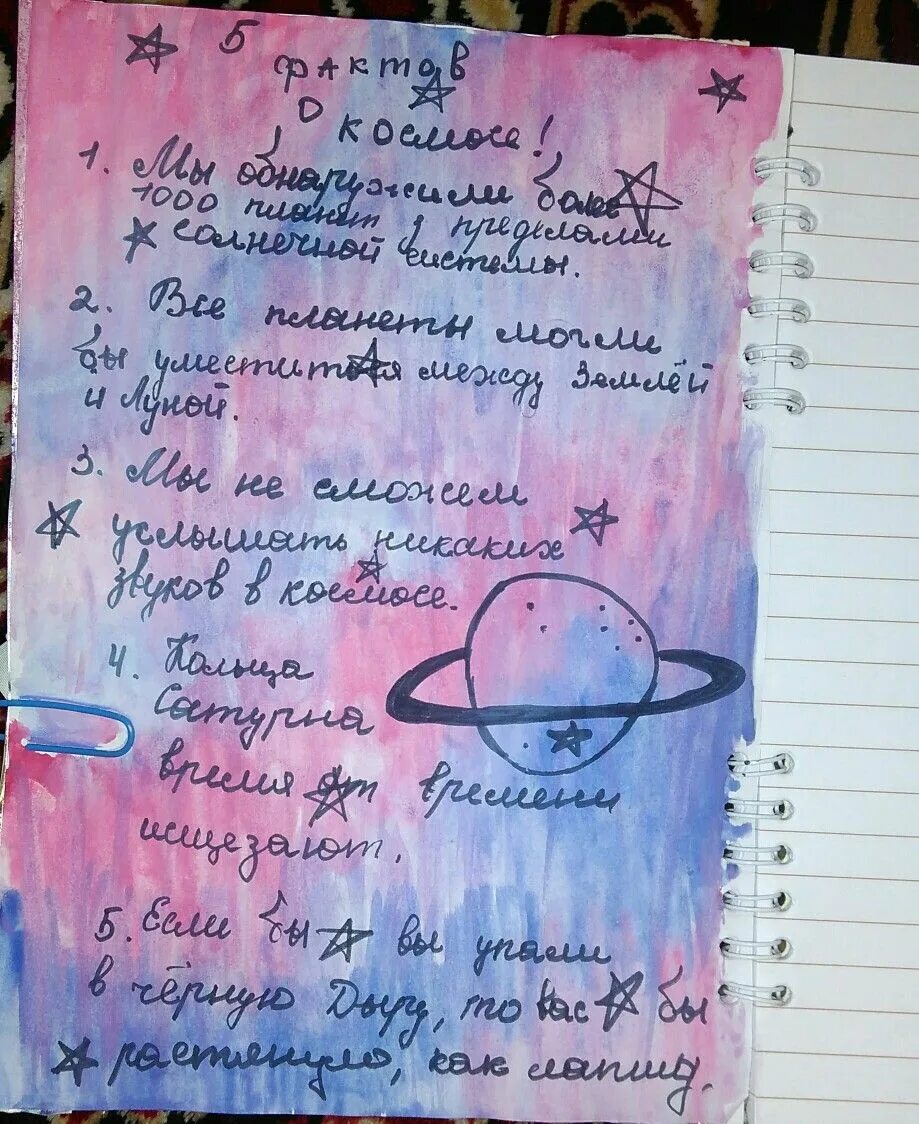 5
фактов
о
космосе!
1. Мы обнаружили более
1000 планет з пределами
солнечной системы.
2. Все планеты могли
бы уместится между Землёй
и Луной.
3. Мы не сможем
услышать никаких
звуков в космосе.
4. Кольца
Сатурна
время от времени
исщезают.
5. Если бы вы упали
в чёрную Дыру, то вас бы
растянуло, как лапшу.